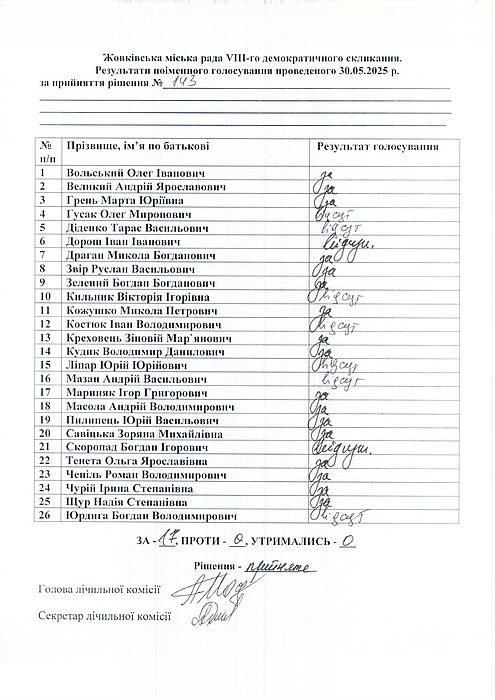 Жовківська міська рада VIII-го демократичного скликання.
Результати поіменного голосування проведеного 30.05.2025 р.
за прийняття рішення № 143
№ п/п Прізвище, ім’я по батькові Результат голосування
1 Вольський Олег Іванович за
2 Великий Андрій Ярославович за
3 Грень Марта Юріївна за
4 Гусак Олег Миронович відсут
5 Діденко Тарас Васильович відсут
6 Дорош Іван Іванович
7 Драган Микола Богданович за
8 Звір Руслан Васильович за
9 Зелений Богдан Богданович за
10 Кильник Вікторія Ігорівна відсут
11 Кожушко Микола Петрович за
12 Костюк Іван Володимирович відсут
13 Креховець Зіновій Мар`янович за
14 Кудик Володимир Данилович за
15 Ліпар Юрій Юрійович відсут
16 Мазан Андрій Васильович відсут
17 Мариняк Ігор Григорович за
18 Масола Андрій Володимирович за
19 Пилипець Юрій Васильович за
20 Савіцька Зоряна Михайлівна за
21 Скоропад Богдан Ігорович
22 Тенета Ольга Ярославівна за
23 Чепіль Роман Володимирович за
24 Чурій Ірина Степанівна за
25 Щур Надія Степанівна за
26 Юрдига Богдан Володимирович відсут
ЗА - 17, ПРОТИ - 0, УТРИМАЛИСЬ - 0
Рішення - прийняте
Голова лічильної комісії
Секретар лічильної комісії